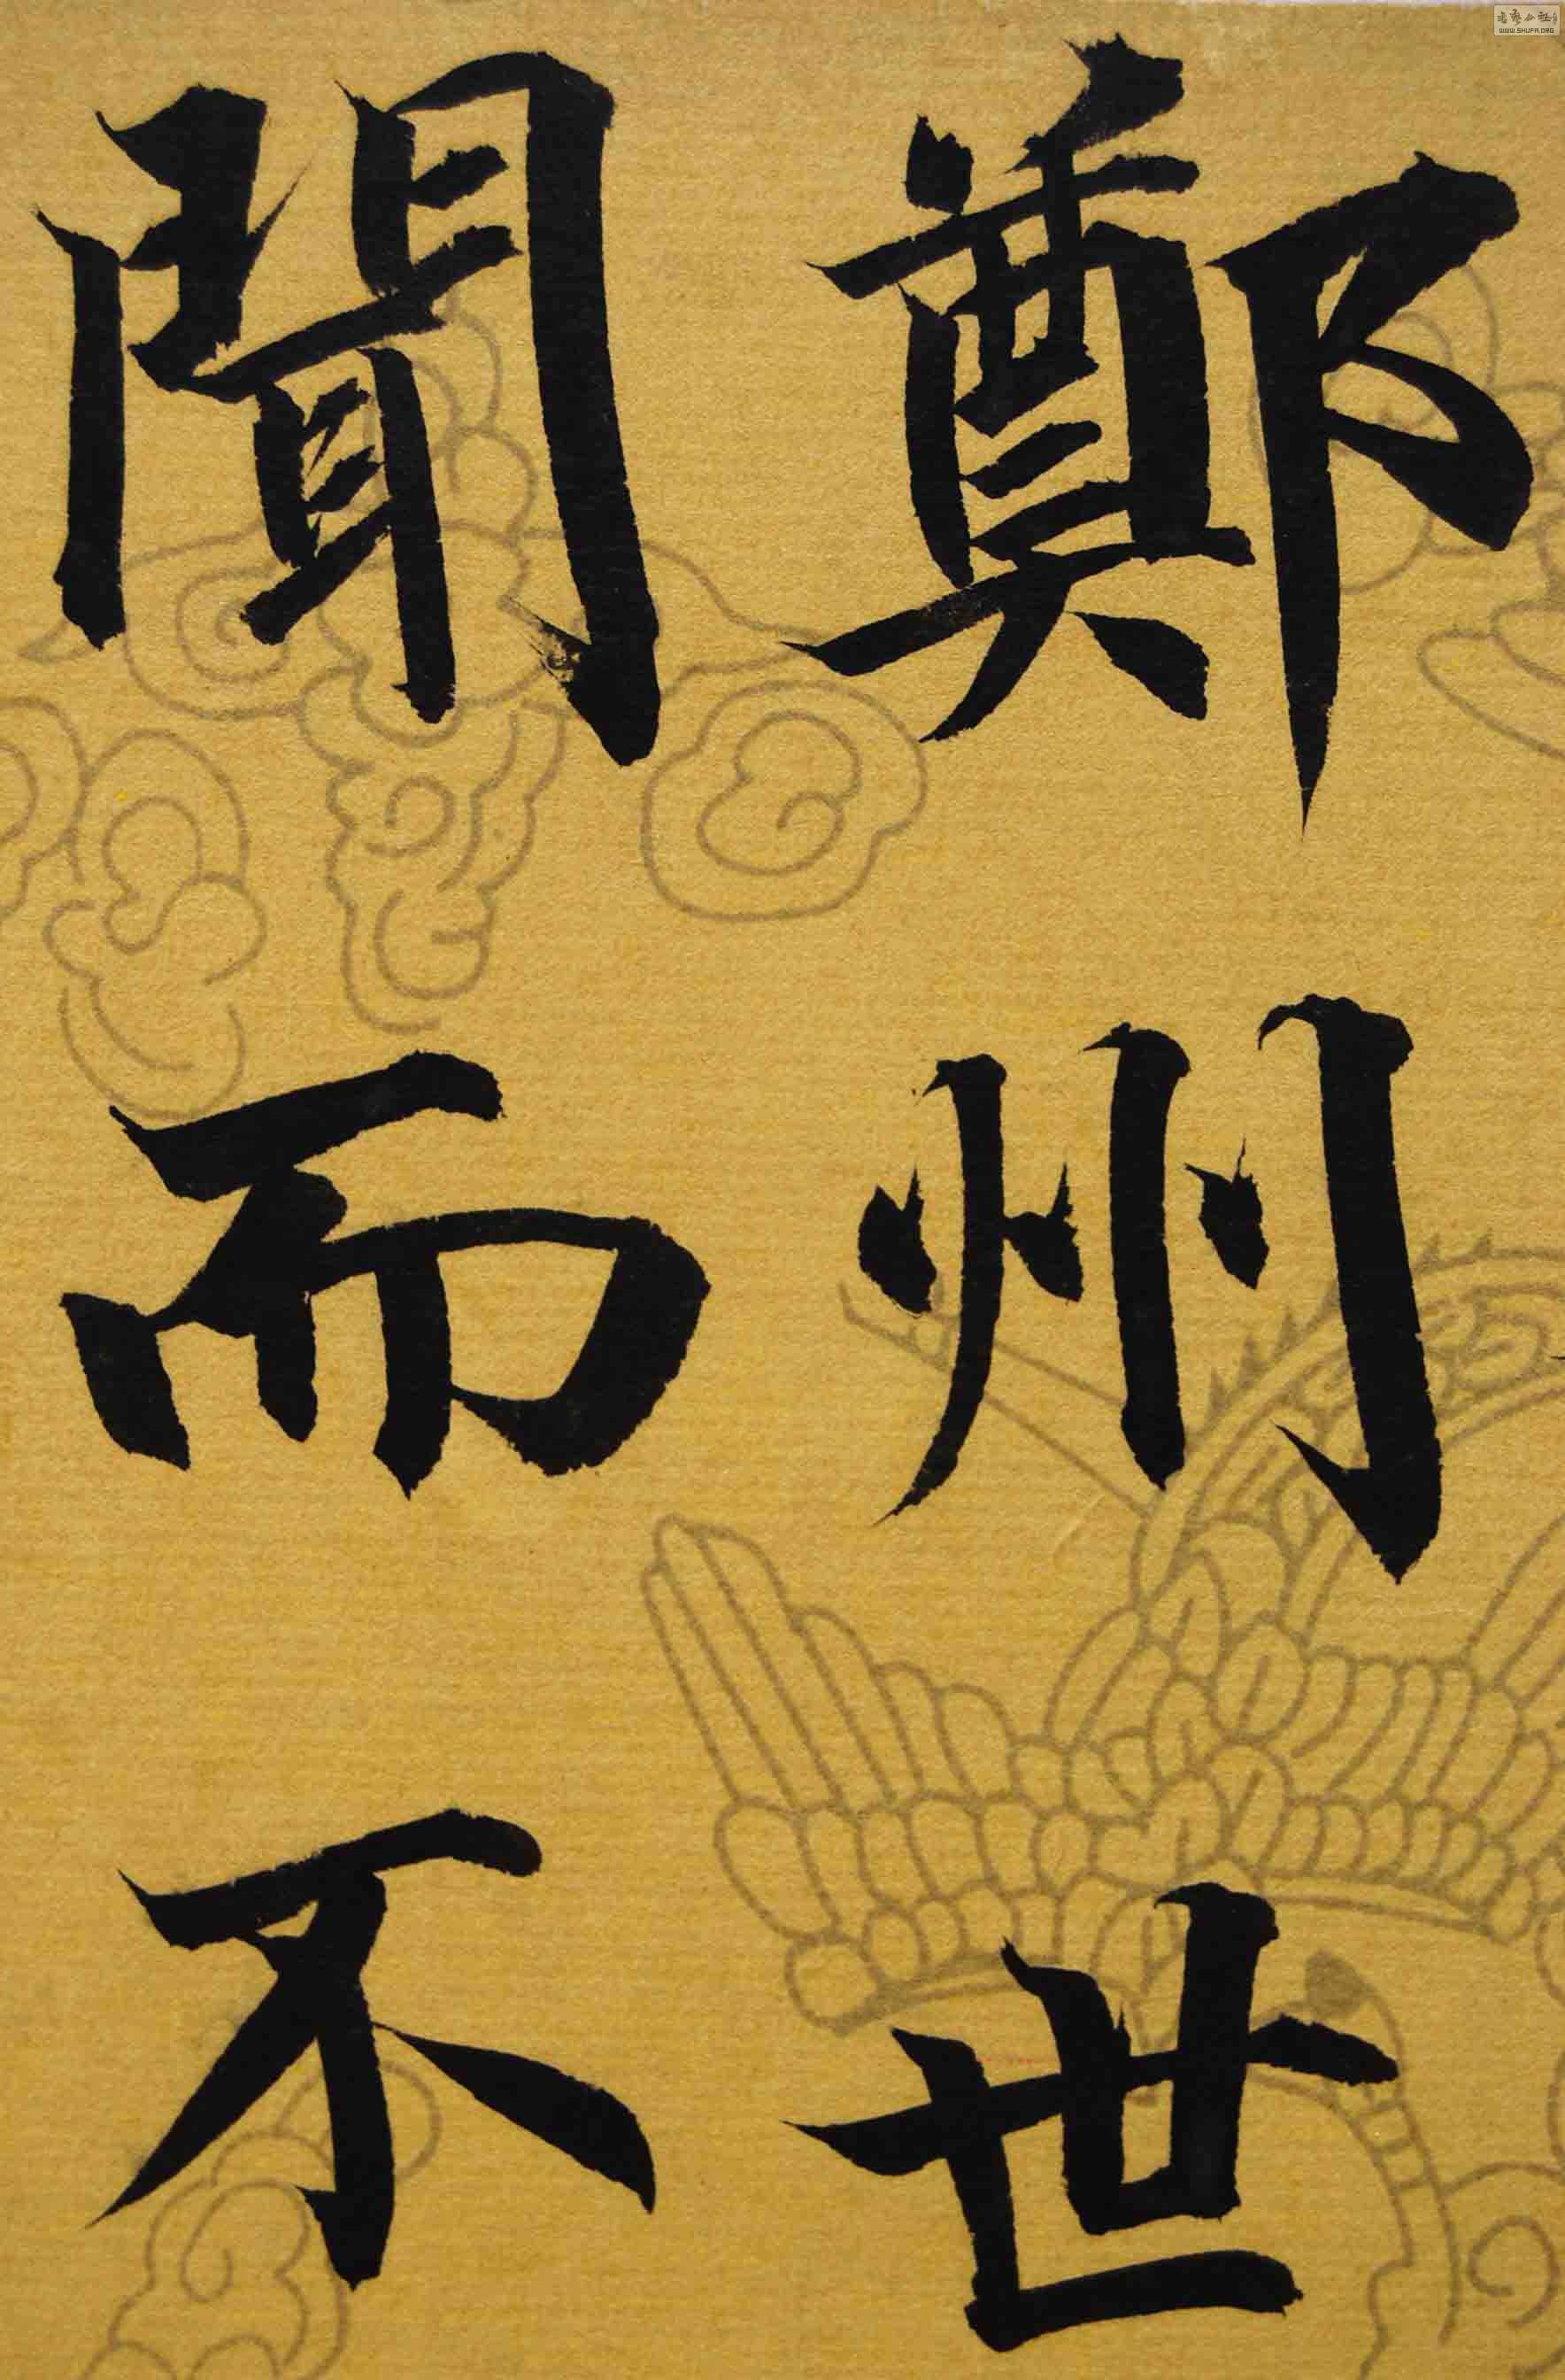 鄭州世
聞而不
WWW.SHUFA.ORG